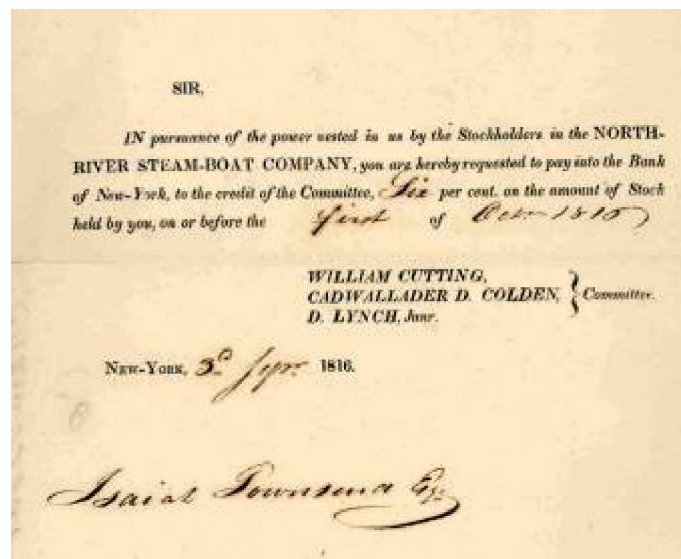 SIR,
IN pursuance of the power vested in us by the Stockholders in the NORTH-
RIVER STEAM-BOAT COMPANY, you are hereby requested to pay into the Bank
of New-York, to the credit of the Committee, Six per cent. on the amount of Stock
held by you, on or before the first of Octr 1816
WILLIAM CUTTING,
CADWALLADER D. COLDEN, } Committee.
D. LYNCH, Junr.
NEW-YORK, 3d Sepr 1816.
Isaiah Townsend Esq